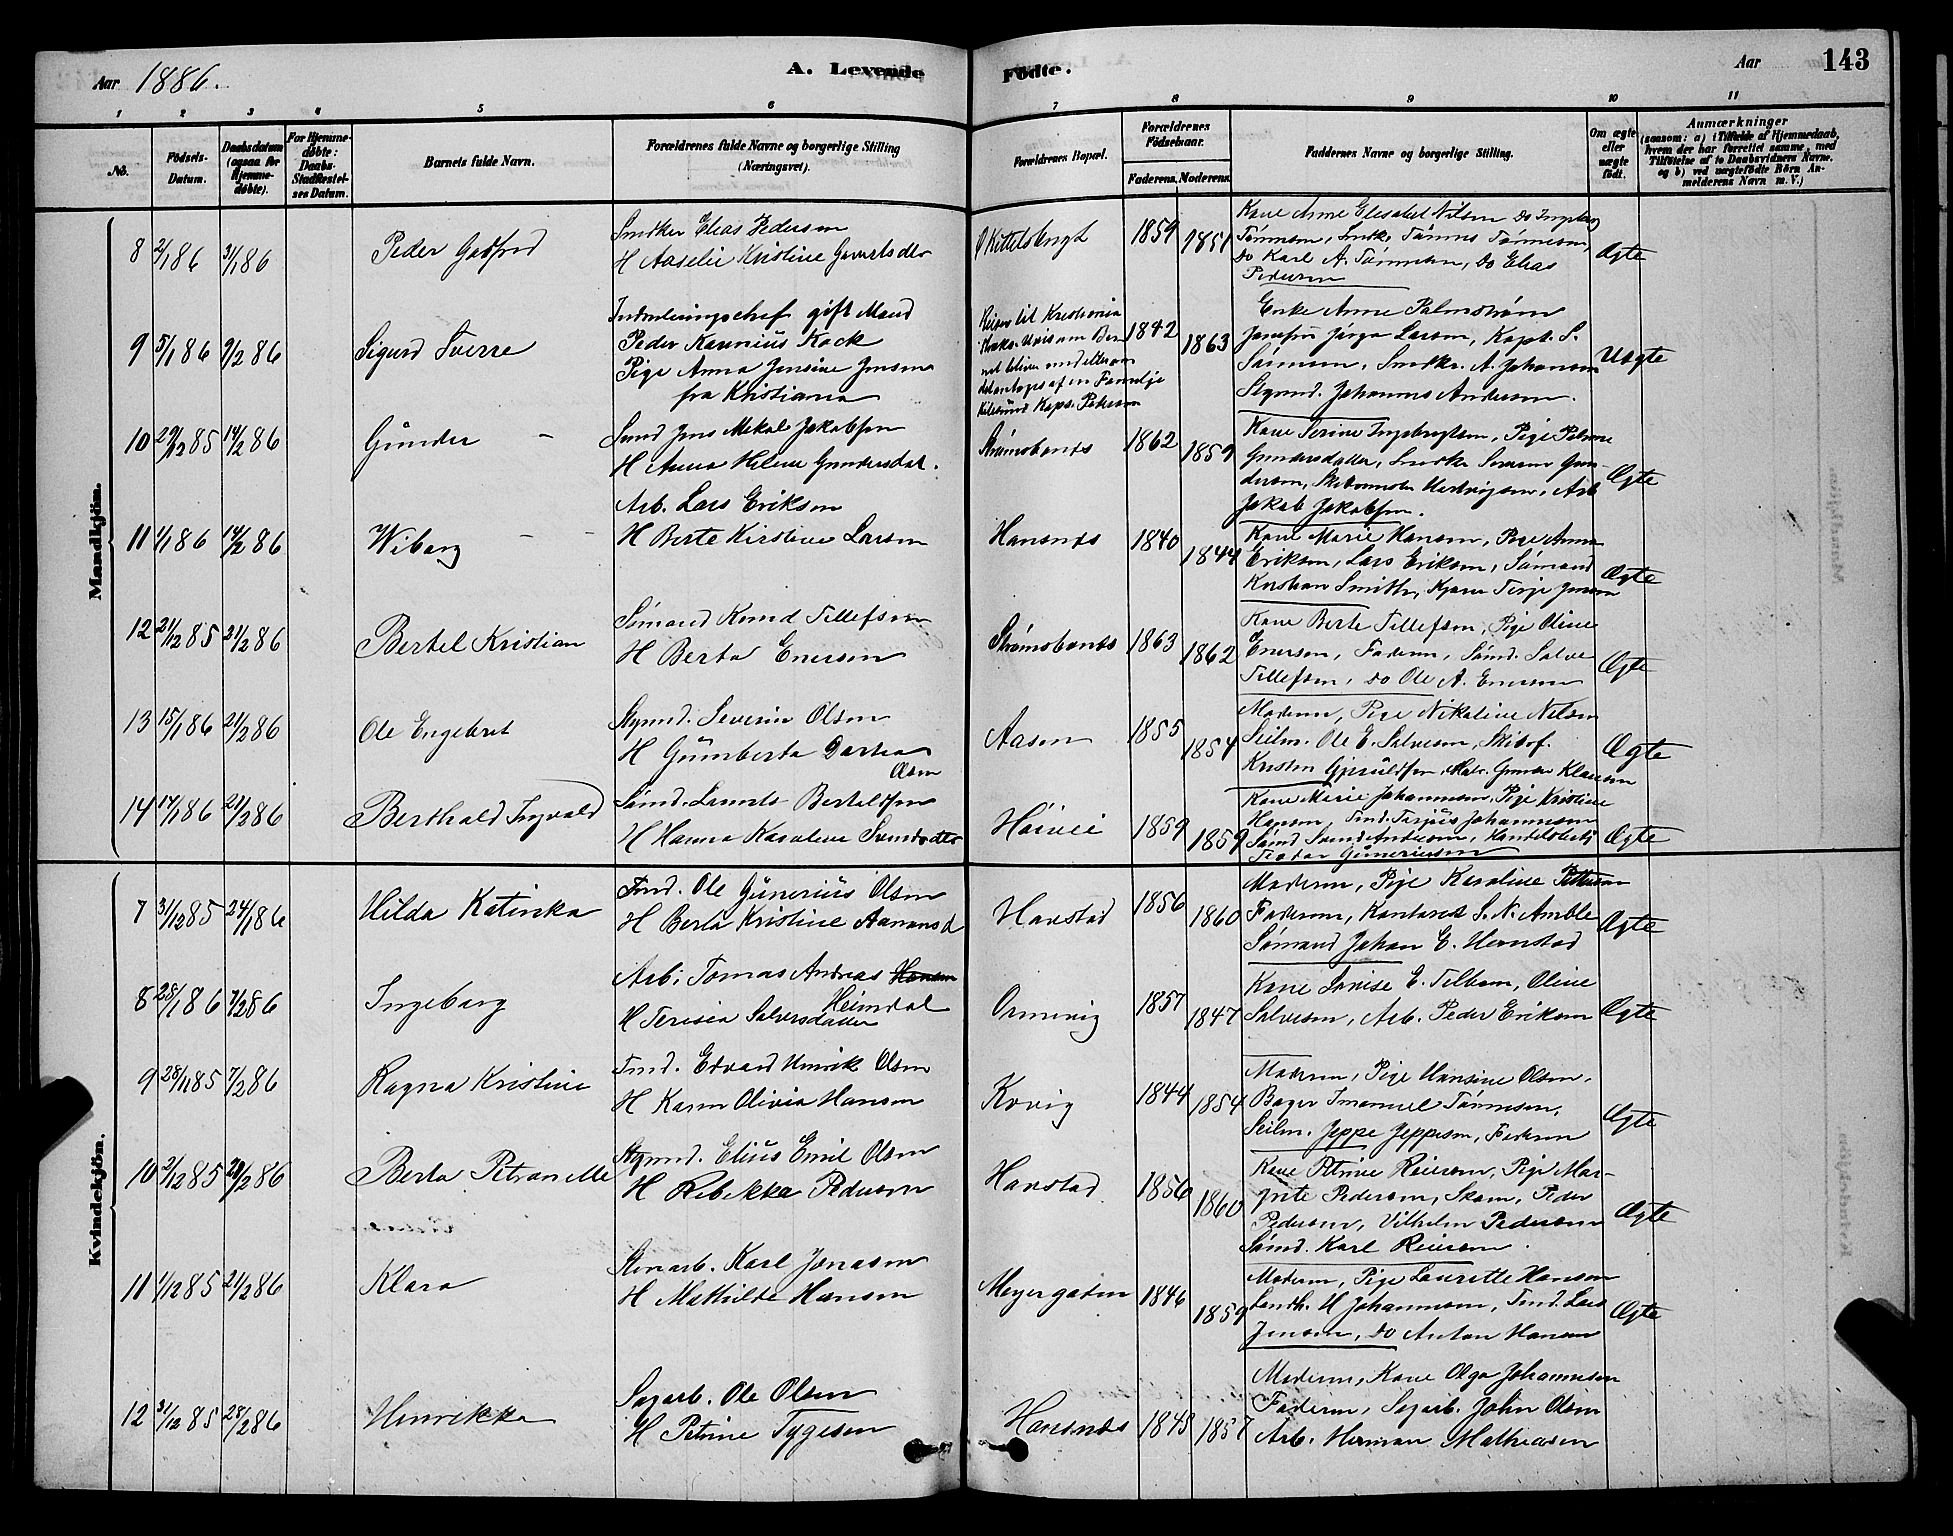 Aar 1886.
A. Levende
Födte.
Aar
143
1 2 3 4 5 6 7 8 9 10 11
No.
Födsels-
Datum.
Daabsdatum
(ogsaa for
Hjemme-
døbte).
For Hjemme-
døbte:
Daabs-
Stadfæstel-
ses Datum.
Barnets fulde Navn.
Forældrenes fulde Navne og borgerlige Stilling
(Næringsvei).
Forældrenes Bopæl.
Forældrenes
Födselsaar.
Faderens. Moderens.
Faddernes Navne og borgerlige Stilling.
Om ægte
eller
uægte
født.
Anmærkninger
(saasom: a) i Tilfælde af Hjemmedaab,
hvem der har forrettet samme, med
Tilföielse af to Daabsvidners Navne,
og b) ved uægtefödte Börn An-
melderens Navn m. V.)
Mandkjön.
8 2/1 86 31/1 86 Peder Godfred
Snedker Elias Pedersen
H Aaselie Kristine Gevertsdtr
Ø Kittelsbugt 1859 1851
Kone Anne Elisabet Nilsen Do Ingeborg
Tønnesen, Snedk. Tønnes Tønnesen,
Do Karl A. Tønnesen, Do Elias
Pedersen
Ægte
9 5/1 86 9/2 86 Sigurd Sverre
gift Mand
Peder Kock
Pige Anna Jensine Jensen
fra Kristiania
Reiser til Kristiania
1842 1863
Enke Anne Palmstrøm
Jomfru Larsen, Kapt. S.
Sørensen, Snedkr. A. Johansen
Stymd. Johannes Andersen.
Uægte
10 29/12 85 14/2 86 Gunder
Sømd Jens Mekal Jakobsen
H Anna Helene Gundersdat.
Strømsbunes 1862 1859
Kone Serine Ingebrigtsen, Pige
Gundersdatter, Snedkr Severin Gun-
dersen, Hartvigsen, Arb
Jakob Jakobsen.
Ægte
11 1/1 86 14/2 86 Wiborg
Arb. Lars Eriksen
H Berte Kirstine Larsen
Hansnes 1840 1844
Kone Marie Hansen, Pige Anna
Eriksen, Lars Eriksen, Sømand
Kristian Smith, Terje Jensen
Ægte
12 21/12 85 21/2 86 Bertel Kristian
Sømand Knud Tellefsen
H Berta Enersen
Strømsbunes 1863 1862
Kone Berte Tellefsen, Pige Oline
Enersen, Faderen, Sømd. Salve
Tellefsen, Do Ole A. Enersen
Ægte
13 15/1 86 21/2 86 Ole Engebret
Stymd. Severin Olsen
H Gumberta Dortea
Olsen
Aasen 1855 1854
Moderen, Pige Nikoline Nilsen
Seilm. Ole E. Salvesen, Skibsf.
Kristen Gjeruldsen, Matr. Gunder Klausen
Ægte
14 14/1 86 21/2 86 Berthold Ingvald
Sømd. Laurits Bertelsen
H Hanna Karoline Svendsdtr
Høivei 1859 1859
Kone Marie Johannesen, Pige Kristine
Hansen, Tmd. Terjus Johannesen
Sømd Svend Andersen, Handelsbetj
Teodor Guneriussen
Ægte
Kvindekjön.
7 31/12 85 24/1 86 Hilda Katinka
Tmd. Ole Gunerius Olsen
H Berta Kristine Aanonsd
Havstad 1856 1860
Moderen, Pige Karoline Pettersen
Faderen, Kantorist S. N. Amble
Sømand Johan E. Hernstad
Ægte
8 28/1 86 7/2 86 Ingeborg
Arb. Tomas Andreas Hansen
Heimdal
H Teresia Salvesdatter
Ormevig 1857 1847
Kone Lovise E. Tellsen, Oline
Salvesen, Arb. Peder Eriksen
Ægte
9 28/11 85 7/2 86 Ragna Kristine
Tmd. Edvard Henrik Olsen
H Karen Olivia Hansen
Kovig 1844 1854
Moderen, Pige Hansine Olsen.
Bager Imanuel Tønnesen,
Seilm. Jeppe Jeppesen, Faderen
Ægte
10 3/12 85 21/2 86 Berta Petronelle
Stymd. Elius Emil Olsen
H Rebekka Pedersen
Havstad 1856 1860
Kone Petrine Reiersen, Pige Mar-
grete Pedersen, Skom. Peder
Pedersen, Vilhelm Pedersen
Sømd. Karl Reiersen.
Ægte
11 1/12 85 21/2 86 Klara
Stenarb. Karl Jonasen
H Mathilde Hansen
Meyergaden 1846 1859
Moderen, Pige Laurette Hansen
Landh. H Johannesen, Tmd. Lars
Jensen, Do Anton Hansen
Ægte
12 31/12 85 28/2 86 Henrikka
Sagarb. Ole Olsen
H Petrine Tygesen
Havesnes 1845 1857
Moderen, Kone Olga Johannesen
Faderen, Sagarb. John Olsen
Arb. Herman Mathiesen